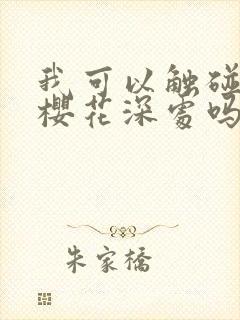 我可以触碰
樱花深处吗
朱家橋